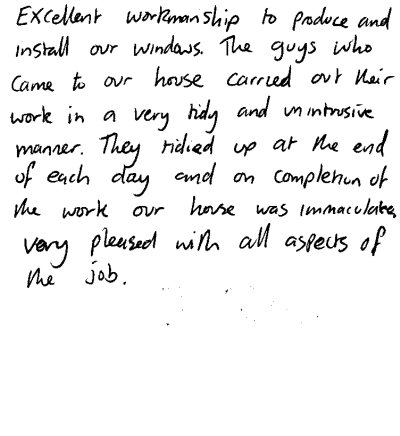 Excellent workmanship to produce and
install our windows. The guys who
came to our house carried out their
work in a very tidy and unintrusive
manner. They tidied up at the end
of each day and on completion of
the work our house was immaculate,
very pleased with all aspects of
the job.